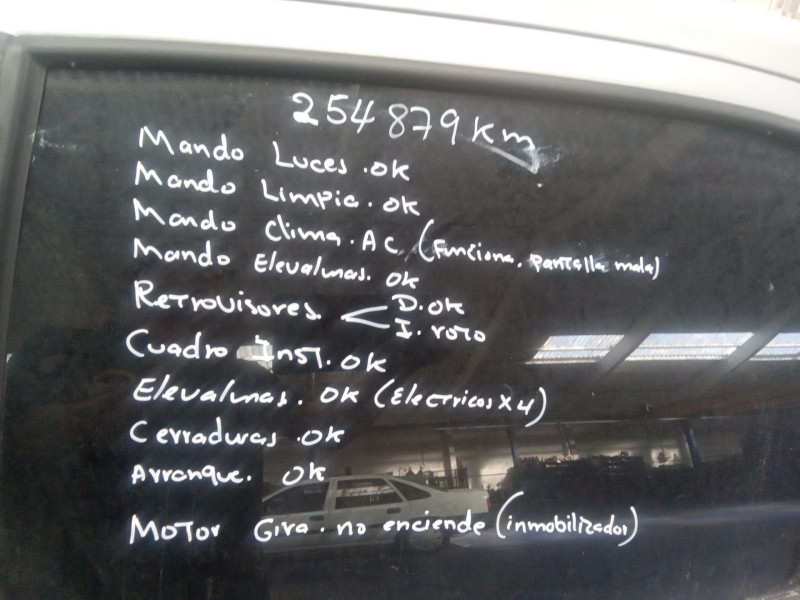 254879 km
Mando Luces. ok
Mando Limpia. ok
Mando Clima. AC (Funciona. Pantalla mala)
Mando Elevalunas. ok
Retrovisores. D. ok
I. roto
Cuadro Inst. ok
Elevalunas. ok (Electricos x 4)
Cerraduras. ok
Arranque. ok
Motor Gira. no enciende (inmobilizador)